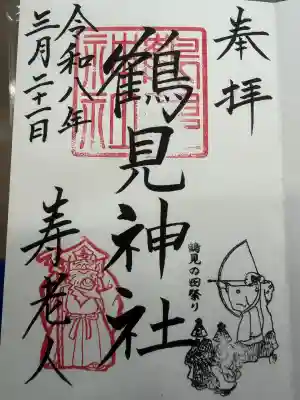 奉拝
鶴見神社
鶴見の田祭り
令和八年
三月二十一日
寿老人